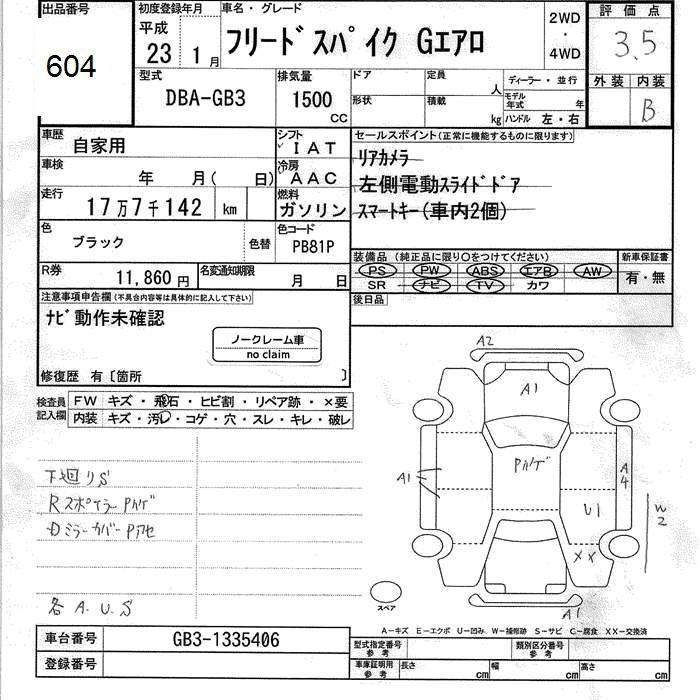 出品番号
604
初度登録年月
平成
23 1月
車名・グレード
フリードスパイク Gエアロ
2WD
・
4WD
評価点
3.5
外装 内装
B
型式
DBA-GB3
排気量
1500
CC
ドア
定員
人
形状
積載
kg
ディーラー・並行
モデル年式 年
ハンドル 左・右
車歴
自家用
シフト
IAT
車検
年 月( 日)
冷房
AAC
走行
17万7千142 km
燃料
ガソリン
色
ブラック
色替
色コード
PB81P
R券
11,860円
名変通知期限
月 日
セールスポイント(正常に機能するものに限ります)
リアカメラ
左側電動スライドドア
スマートキー(車内2個)
装備品(純正品に限り○をつけてください)
PS PW ABS エアB AW
SR ナビ TV カワ
新車保証書
有・無
後日品
注意事項申告欄(不具合内容等は具体的に記入して下さい)
ナビ動作未確認
ノークレーム車
no claim
修復歴 有〔箇所 〕
検査員記入欄
FW キズ・飛石・ヒビ割・リペア跡・×要
内装 キズ・汚レ・コゲ・穴・スレ・キレ・破レ
下廻りS
RスポイラーPハゲ
DミラーカバーPアセ
各 A.U.S
A2
A1
Pハゲ
A1
A4
U1
W2
XX
A1
スペア
A-キズ E-エクボ U-凹み W-補修跡 S-サビ C-腐食 XX-交換済
車台番号
GB3-1335406
登録番号
型式指定番号
参考
類別区分番号
参考
車庫証明用
参考
長さ cm
幅 cm
高さ cm